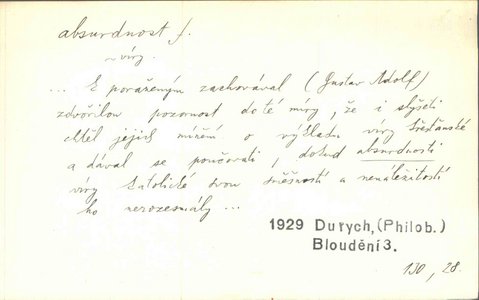 absurdnost f.
~ víry.
... K poraženým zachovával (Gustav Adolf)
zdvořilou pozornost do té míry, že i slyšeti
chtěl jejich mínění o výkladu víry křesťanské
a dával se poučovati, dokud absurdnosti
víry katolické svou směšností a nenáležitostí
ho nerozesmály ...
1929 Durych, (Philob.)
Bloudění 3.
130, 28.